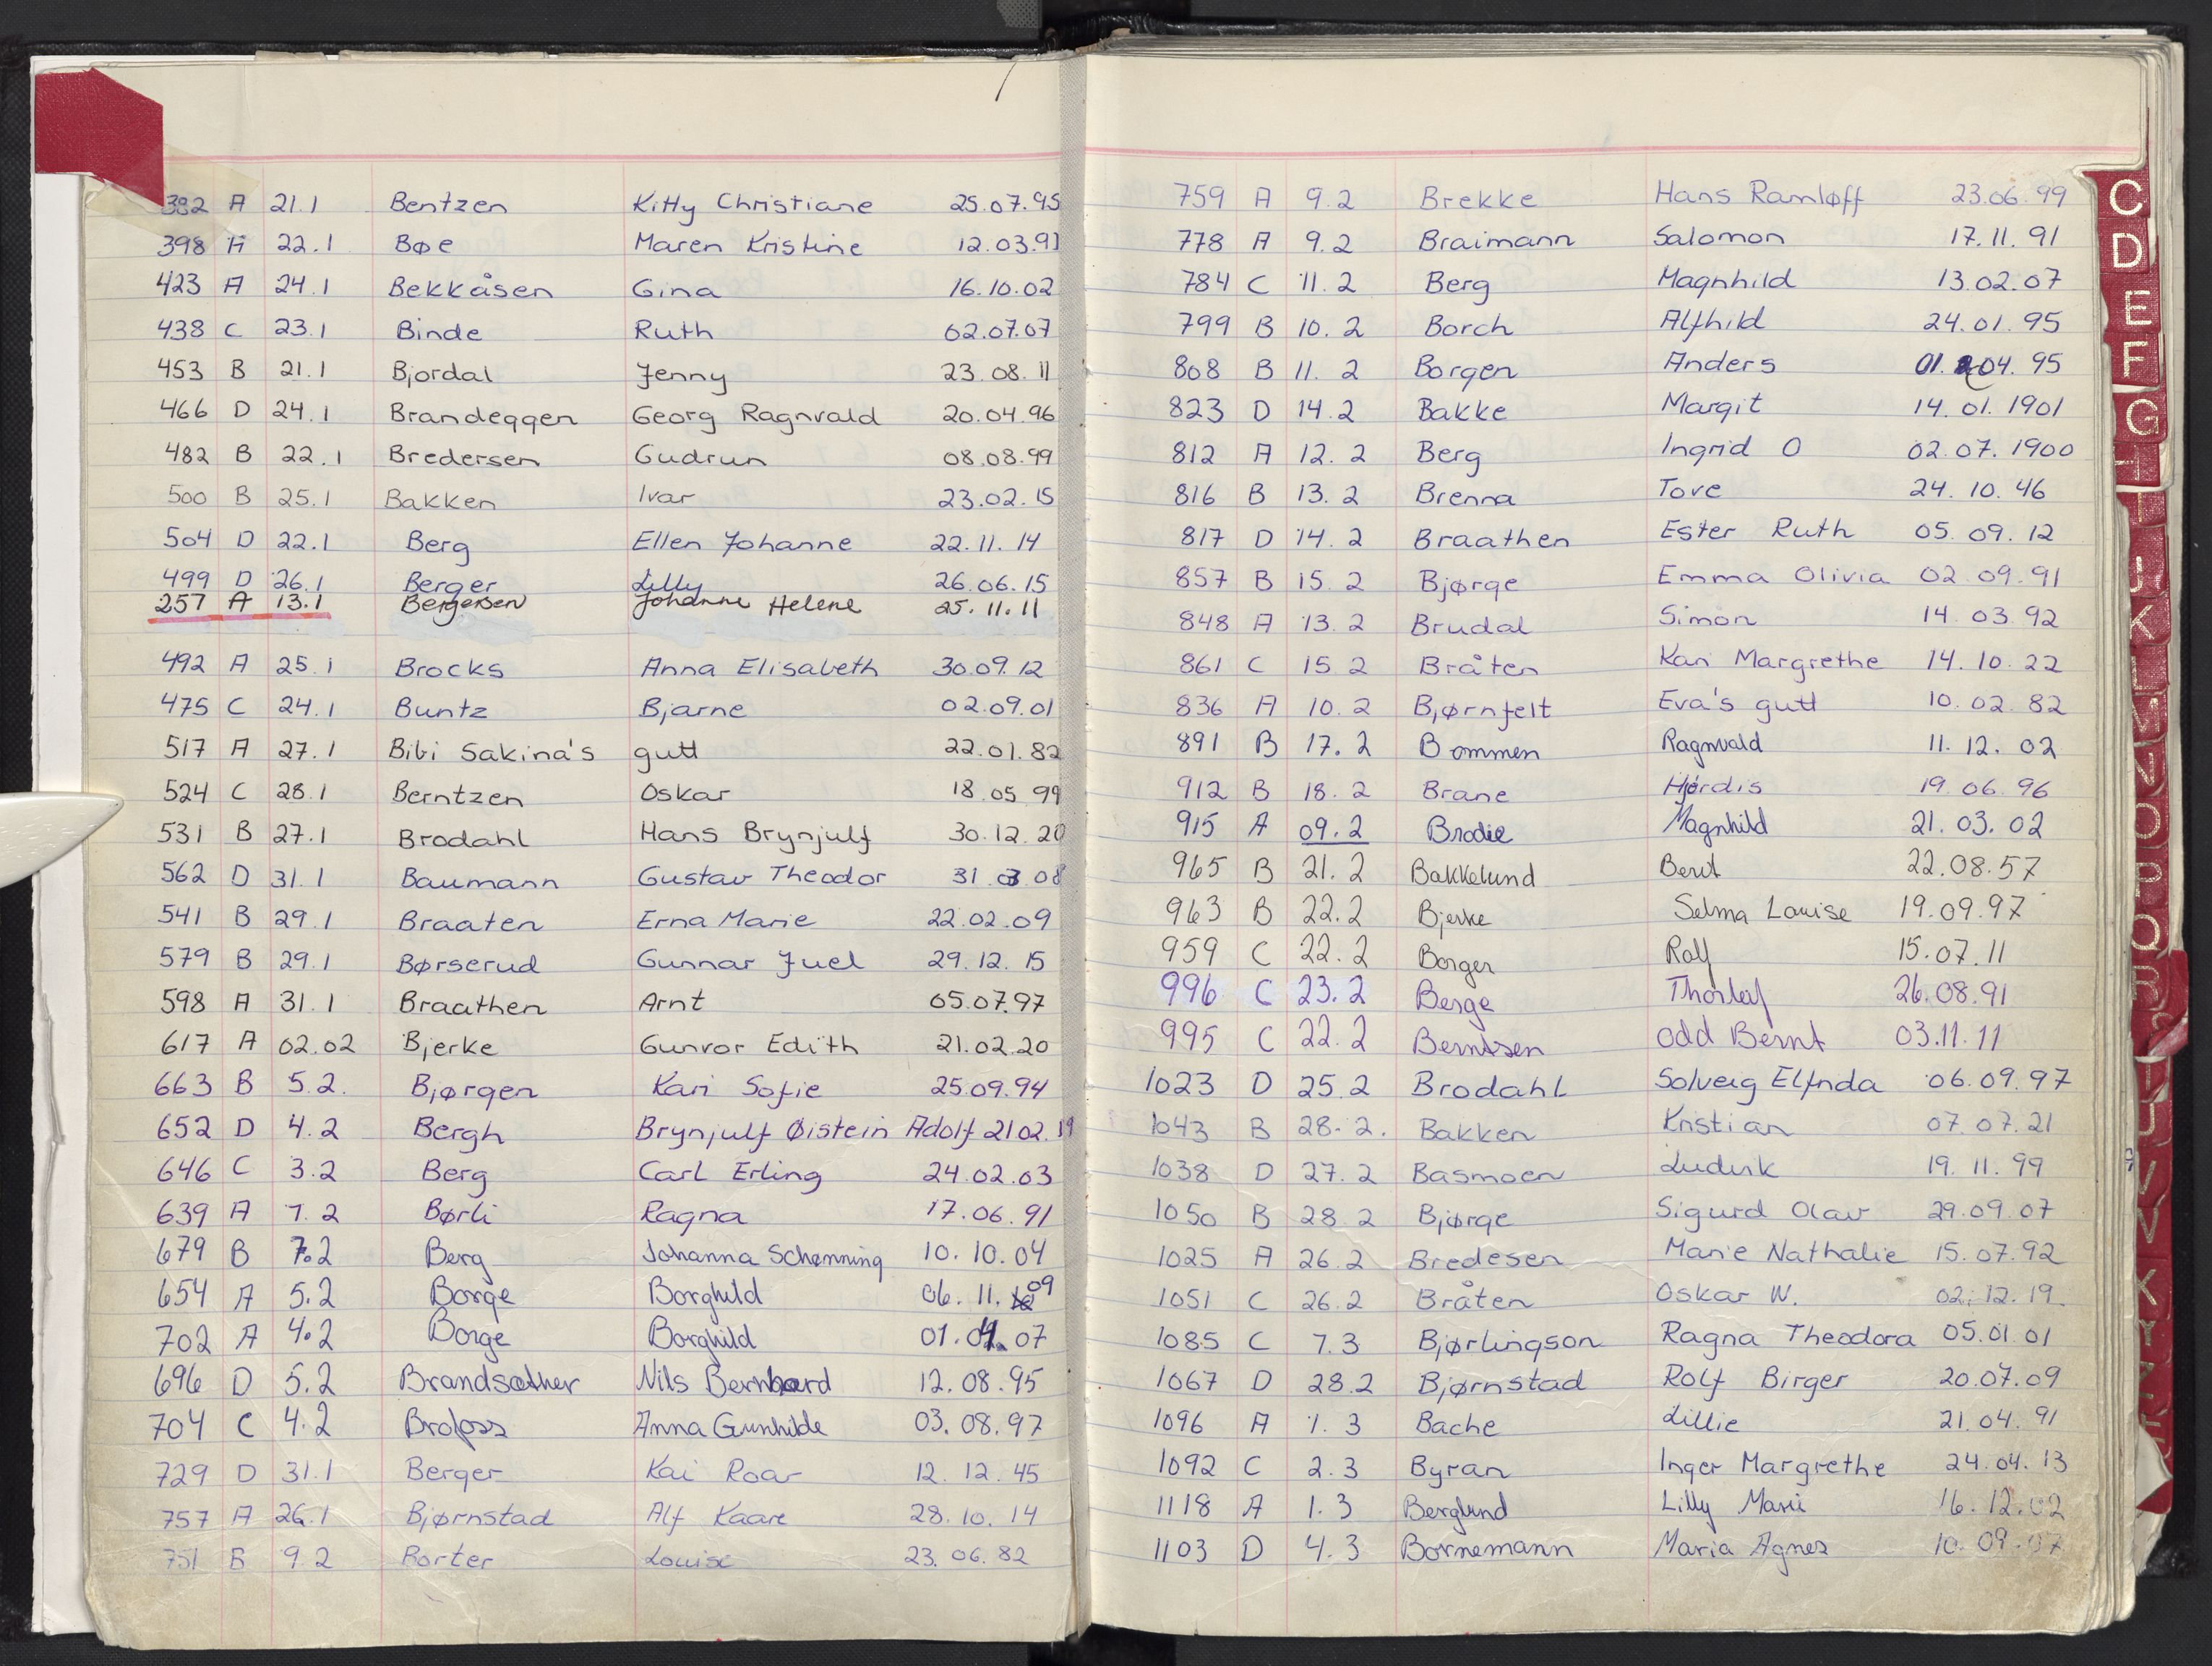 392 A 21.1 Bentzen Kitty Christiane 25.07.95
398 A 22.1 Bøe Maren Kristine 12.03.91
423 A 24.1 Bekkåsen Gina 16.10.02
438 C 23.1 Binde Ruth 02.07.07
453 B 21.1 Bjordal Jenny 23.08.11
466 D 24.1 Brandeggen Georg Ragnvald 20.04.96
482 B 22.1 Bredersen Gudrun 08.08.99
500 B 25.1 Bakken Ivar 23.02.15
504 D 22.1 Berg Ellen Johanne 22.11.14
499 D 26.1 Berger Lilly 26.06.15
257 A 13.1 Bergersen Johanne Helene 25.11.11
492 A 25.1 Brocks Anna Elisabeth 30.09.12
475 C 24.1 Buntz Bjarne 02.09.01
517 A 27.1 Bibi Sakina's gutt 22.01.82
524 C 28.1 Berntzen Oskar 18.05.99
531 B 27.1 Brodahl Hans Brynjulf 30.12.20
562 D 31.1 Baumann Gustav Theodor 31.03.08
541 B 29.1 Braaten Erna Marie 22.02.09
579 B 29.1 Børserud Gunnar Juel 29.12.15
598 A 31.1 Braathen Arnt 05.07.97
617 A 02.02 Bjerke Gunvor Edith 21.02.20
663 B 5.2. Bjørgen Kari Sofie 25.09.94
652 D 4.2 Bergh Brynjulf Øistein Adolf 21.02.19
646 C 3.2 Berg Carl Erling 24.02.03
639 A 1.2 Børli Ragna 17.06.91
679 B 7.2 Berg Johanna Schønning 10.10.04
654 A 5.2 Borge Borghild 06.11.09
702 A 4.2 Borge Borghild 01.04.07
696 D 5.2 Brandsæther Nils Bernhard 12.08.95
704 C 4.2 Brofoss Anna Gunhilde 03.08.97
729 D 31.1 Berger Kai Roar 12.12.45
757 A 26.1 Bjørnstad Alf Kaare 28.10.14
751 B 9.2 Borter Louise 23.06.82
759 A 9.2 Brekke Hans Ramløff 23.06.99
778 A 9.2 Braimann Salomon 17.11.91
784 C 11.2 Berg Magnhild 13.02.07
799 B 10.2 Borch Alfhild 24.01.95
808 B 11.2 Borgen Anders 01.04.95
823 D 14.2 Bakke Margit 14.01.1901
812 A 12.2 Berg Ingrid O 02.07.1900
816 B 13.2 Brenna Tove 24.10.46
817 D 14.2 Braathen Ester Ruth 05.09.12
857 B 15.2 Bjørge Emma Olivia 02.09.91
848 A 13.2 Brudal Simon 14.03.92
861 C 15.2 Bråten Kari Margrethe 14.10.22
836 A 10.2 Bjørnfelt Eva's gutt 10.02.82
891 B 17.2 Bommen Ragnvald 11.12.02
912 B 18.2 Brane Hjørdis 19.06.96
915 A 09.2 Brodie Magnhild 21.03.02
965 B 21.2 Bakkelund Berit 22.08.57
963 B 22.2 Bjerke Selma Louise 19.09.97
959 C 22.2 Borger Rolf 15.07.11
996 C 23.2 Berge Thorleif 26.08.91
995 C 22.2 Berntsen Odd Bernt 03.11.11
1023 D 25.2 Brodahl Solveig Elfrida 06.09.97
1043 B 28.2. Bakken Kristian 07.07.21
1038 D 27.2 Basmoen Ludvik 19.11.99
1050 B 28.2 Bjørge Sigurd Olav 29.09.07
1025 A 26.2 Bredesen Marie Nathalie 15.07.92
1051 C 26.2 Bråten Oskar W. 02.12.19.
1085 C 7.3 Bjørlingson Ragna Theodora 05.01.01
1067 D 28.2 Bjørnstad Rolf Birger 20.07.09
1096 A 1.3 Bache Lillie 21.04.91
1092 C 2.3 Byran Inger Margrethe 24.04.13
1118 A 1.3 Berglund Lilly Marie 16.12.02
1103 D 4.3 Bornemann Maria Agnes 10.09.07
C
D
E
F
G
H
I
J
K
L
M
N
O
P
Q
R
T
U
V
W
X
Y